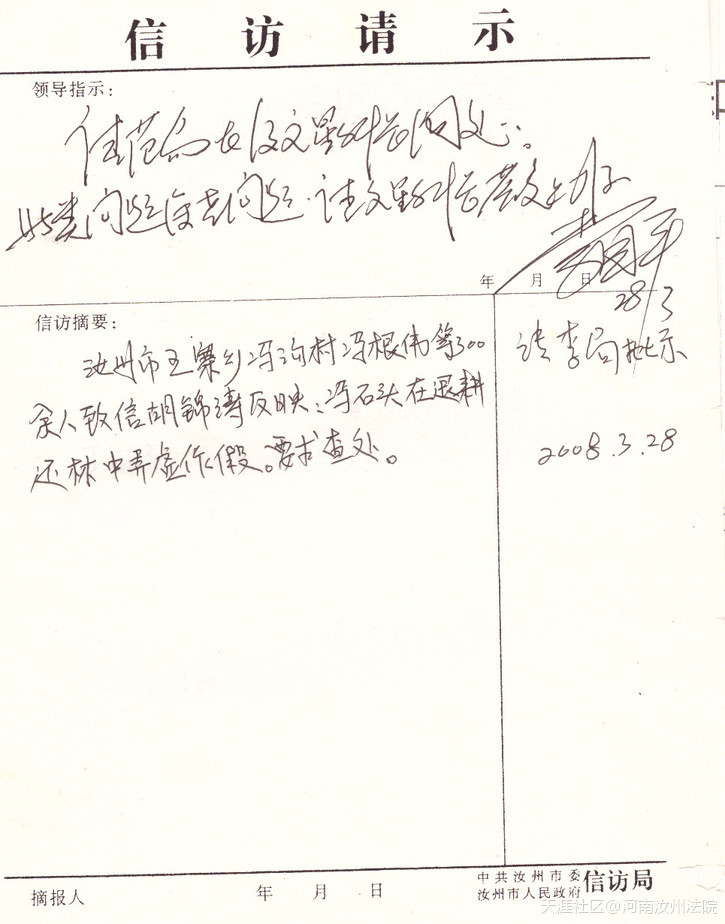 信访请示
领导指示:
佳范局长及文星科长阅处。
此类问题系老问题.请文星科长落实办
年 月 日
28/3
信访摘要:
汝州市王寨乡冯沟村冯根伟等300
余人致信胡锦涛反映:冯石头在退耕
还林中弄虚作假。要求查处。
请李局批示
2008.3.28
摘报人 年 月 日
中共汝州市委
汝州市人民政府 信访局
天涯社区@河南汝州法院